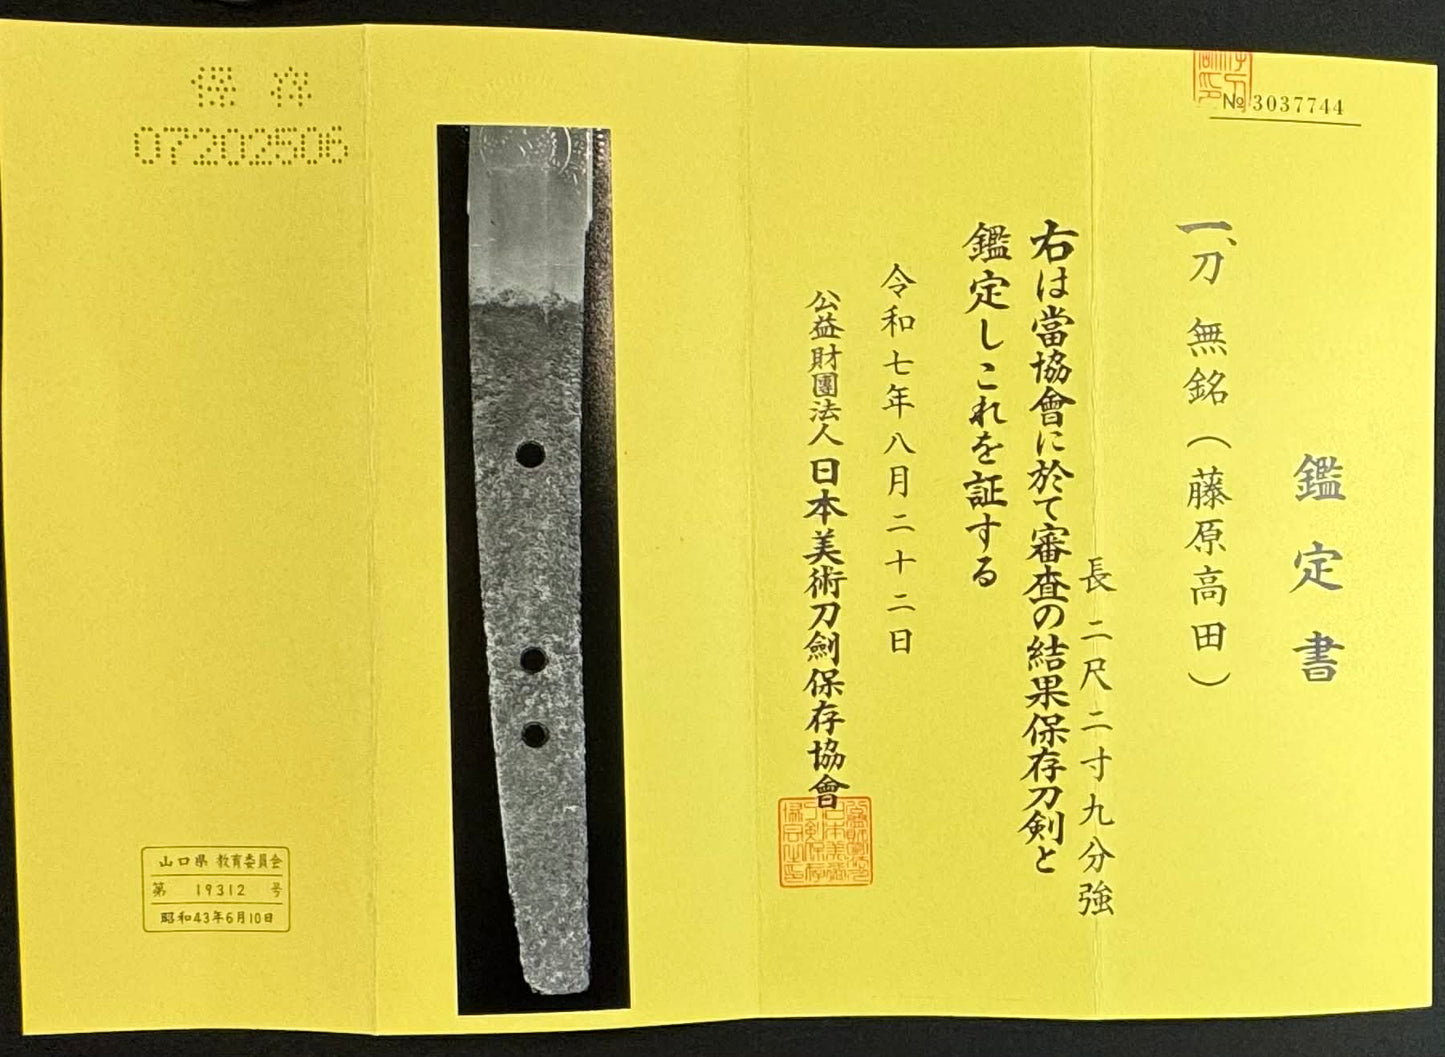 № 3037744
鑑定書
一、刀 無銘（藤原高田）
長 二尺二寸九分強
右は當協會に於て審査の結果保存刀剣と
鑑定しこれを証する
令和七年八月二十二日
公益財團法人 日本美術刀劍保存協會
保存
07202506
山口県 教育委員会
第 19312 号
昭和43年6月10日